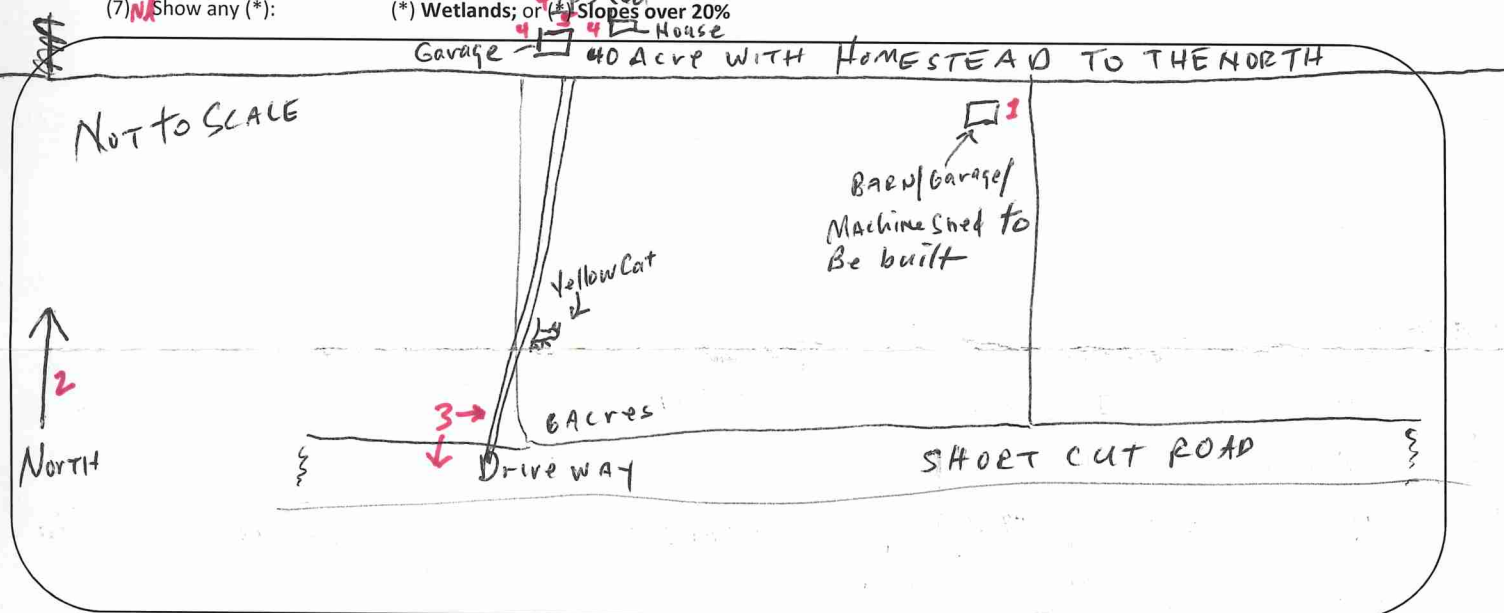 (7) NA Show any (*): (*) Wetlands; or (*) Slopes over 20%
4 4 House
Garage 40 Acre WITH HOMESTEAD TO THE NORTH
NOT to SCALE
1
BARN/Garage/
Machine Shed to
Be built
Yellow Cat
2
3 → 6 Acres
North
Drive WAY
SHORT CUT ROAD